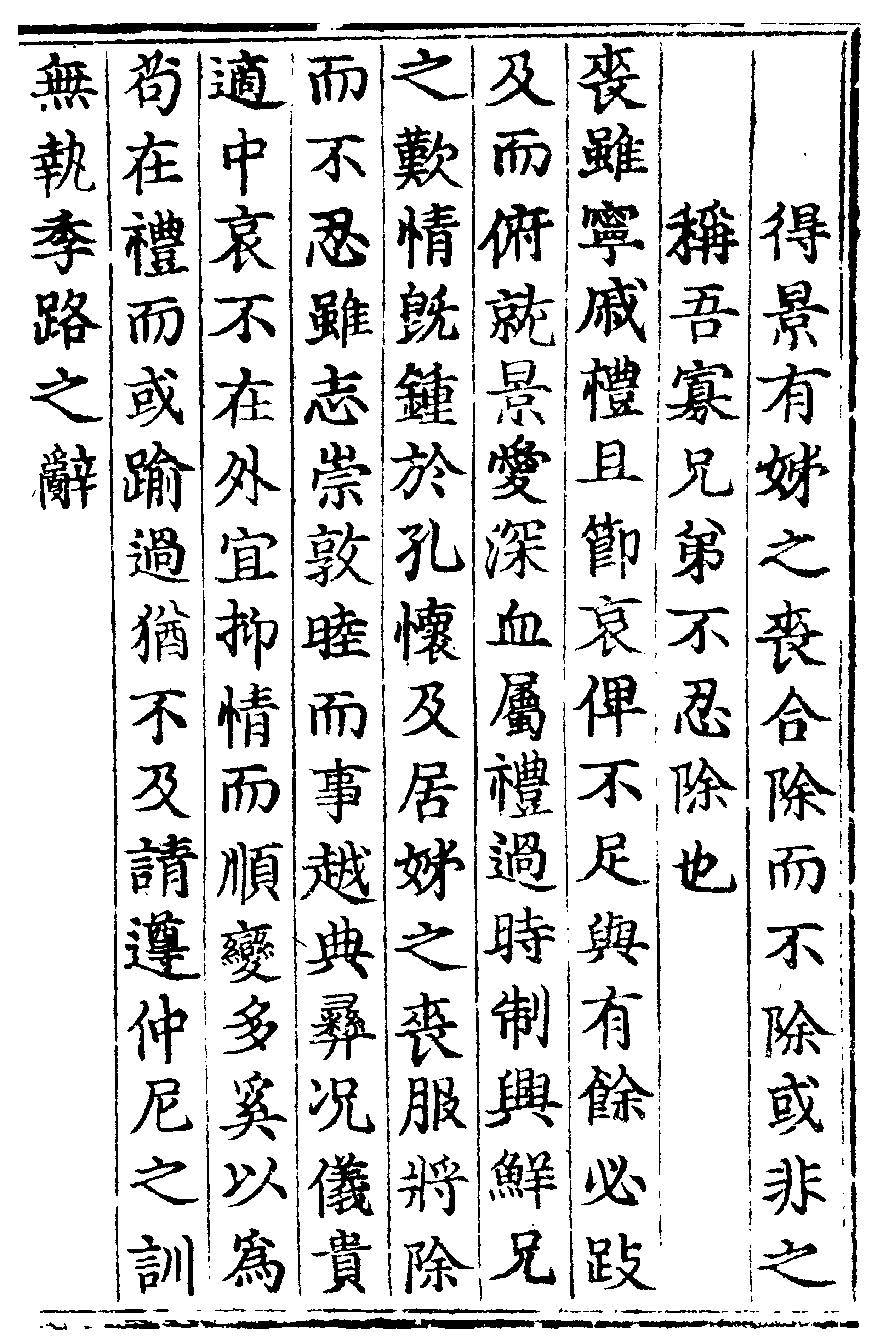 得景有姊之喪合除而不除或非之
稱吾寡兄弟不忍除也
喪雖寧戚禮且節哀俾不足與有餘必跂
及而俯就景愛深血屬禮過時制興鮮兄
之歎情旣鍾於孔懷及居姊之喪服將除
而不忍雖志崇敦睦而事越典彞况儀貴
適中哀不在外宜抑情而順變多奚以爲
苟在禮而或踰過猶不及請遵仲尼之訓
無執季路之辭